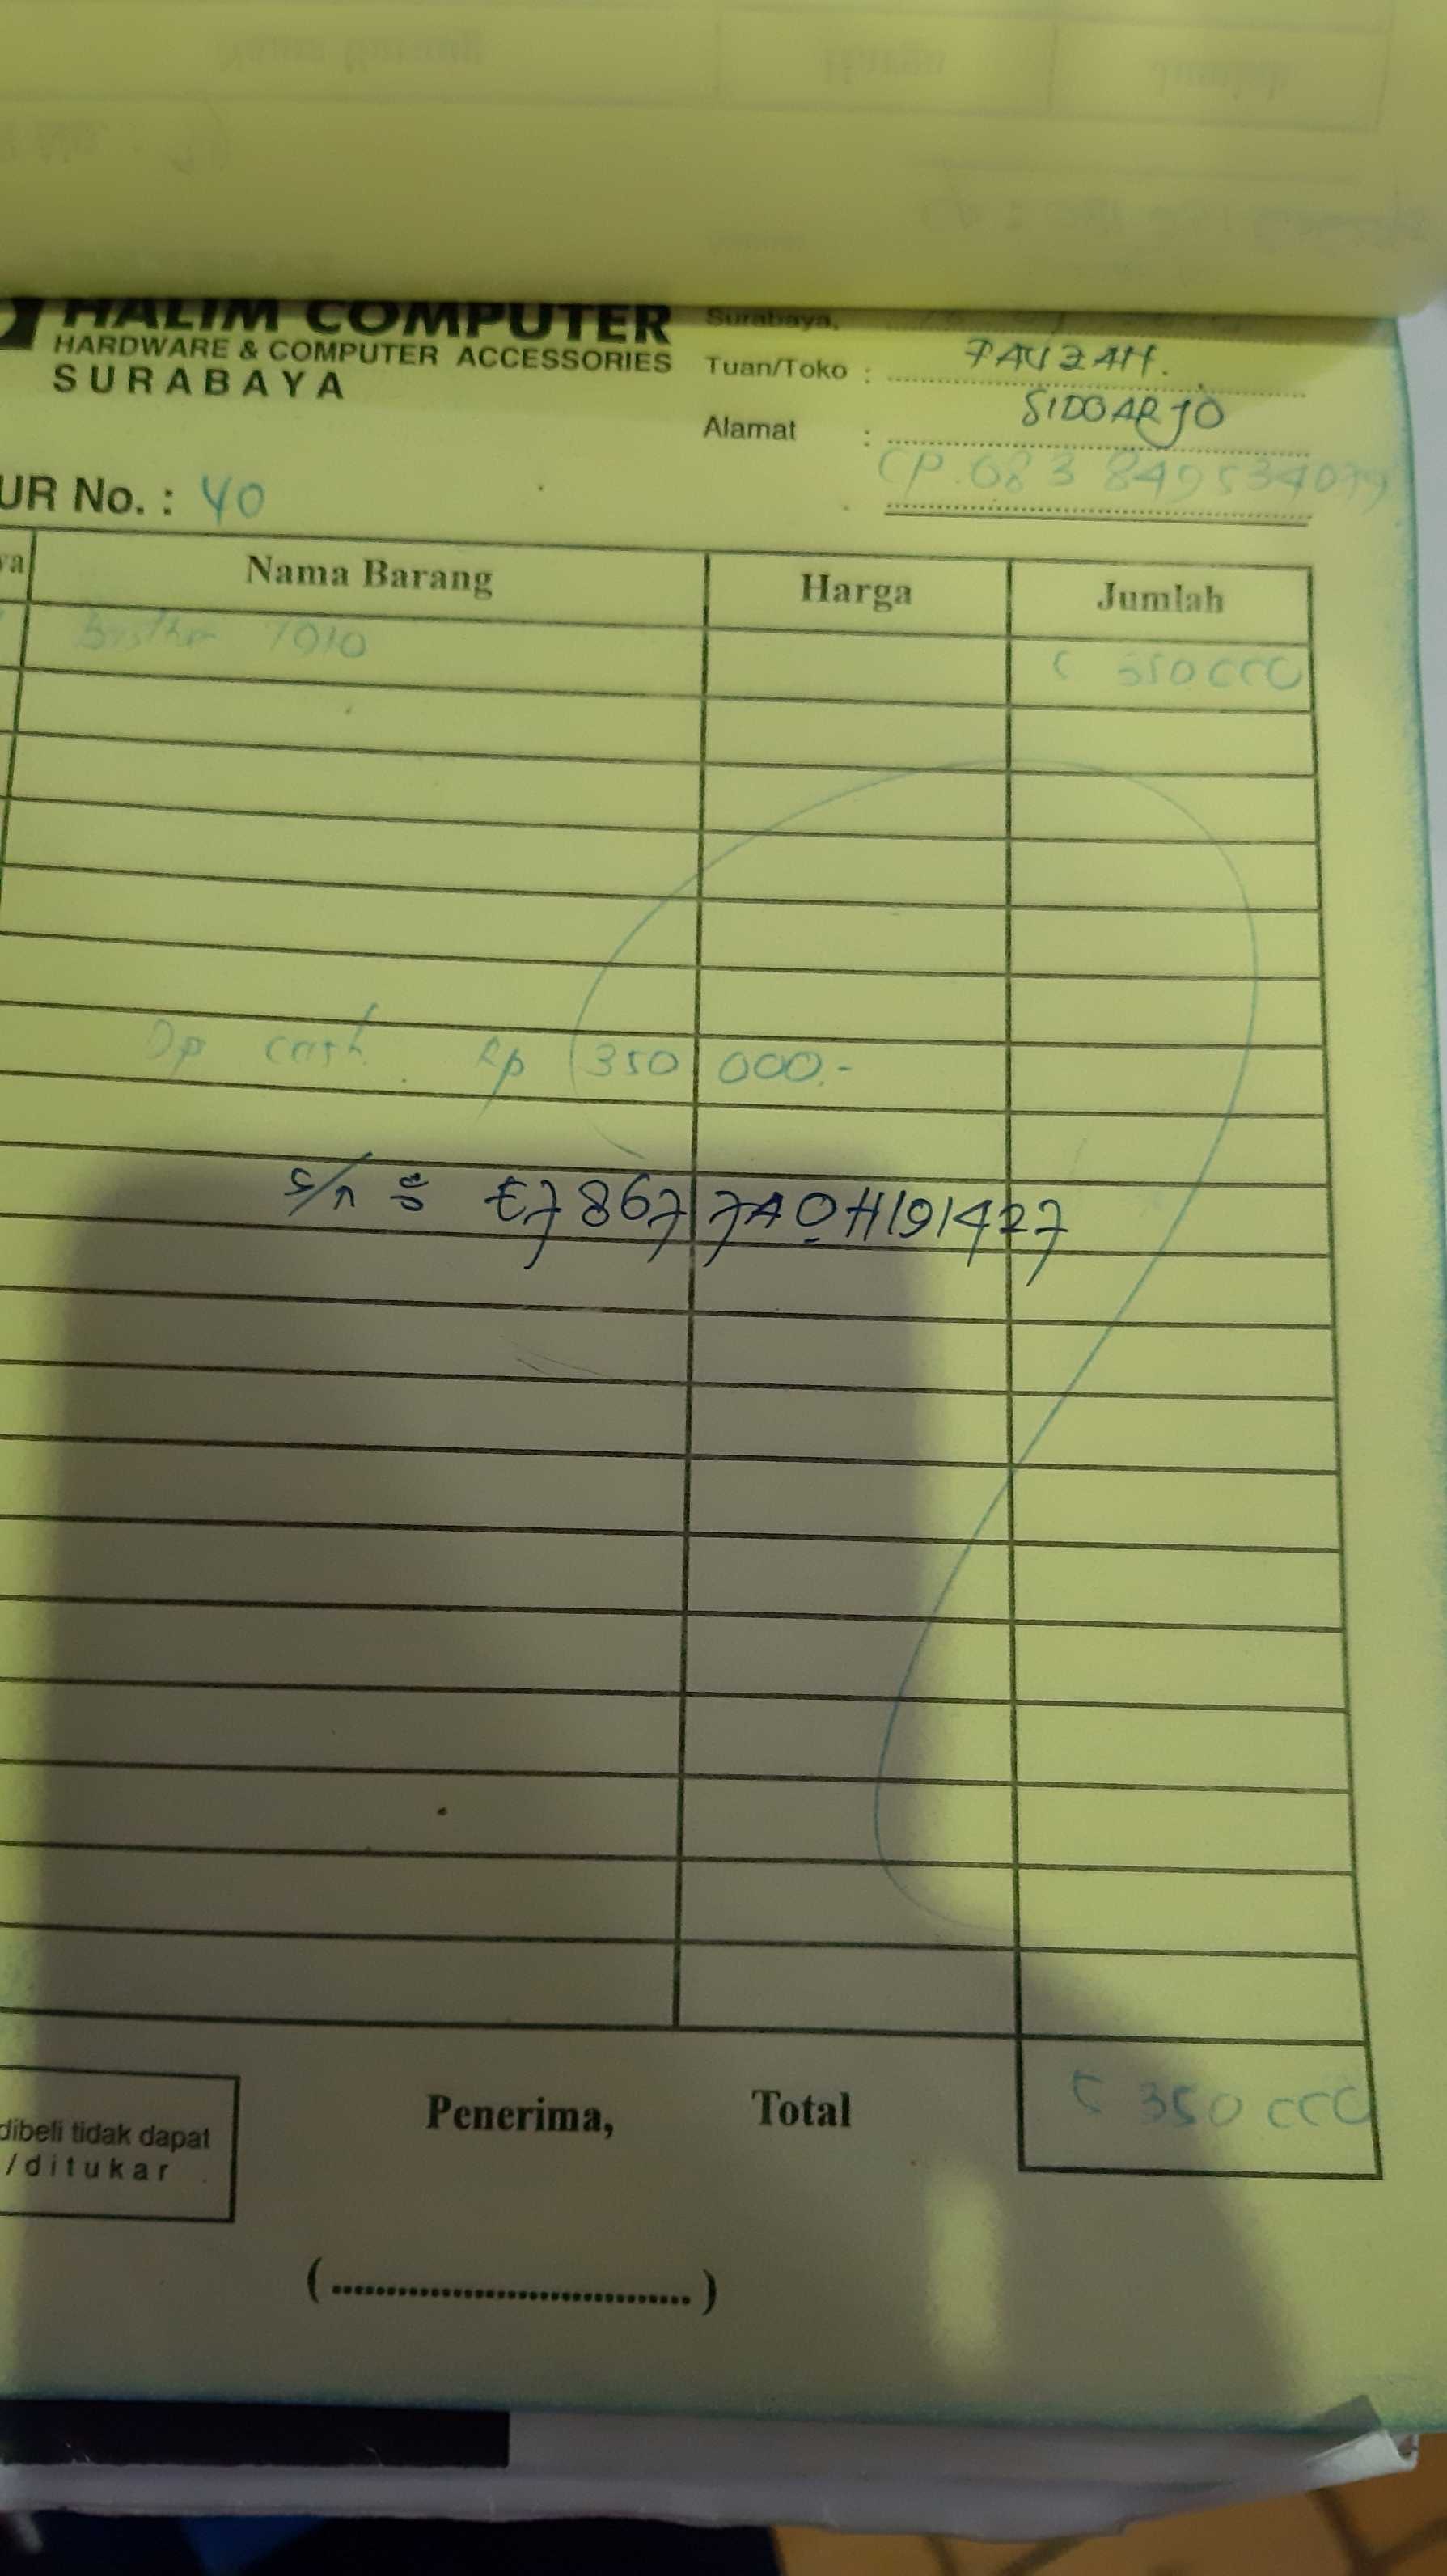 HALIM COMPUTER
HARDWARE & COMPUTER ACCESSORIES
SURABAYA
Surabaya,
Tuan/Toko : FAUZAH.
Alamat : SIDOARJO
UR No. : 40
Nama Barang Harga Jumlah
Brother 7910 5 350 000
Dp cash Rp 350 000.-
S/N = E78677A0H191427
Penerima, Total 5 350 000
dibeli tidak dapat
/ditukar
(....................................)